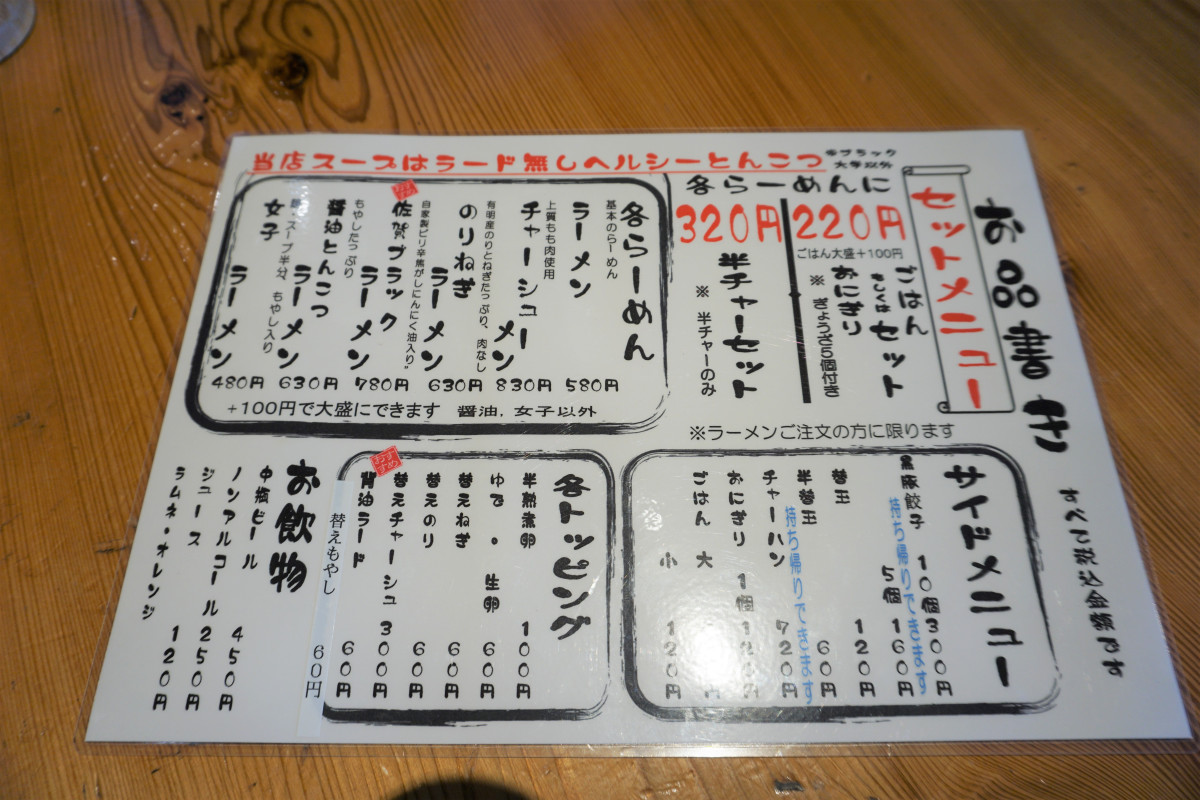 お品書き
すべて税込金額です
当店スープはラード無しヘルシーとんこつ
※ブラック
大学以外
セットメニュー
各らーめんに
220円
ごはん大盛+100円
ごはん
もしくは セット
おにぎり
※ ぎょうざ5個付き
320円
半チャーセット
※ 半チャーのみ
※ラーメンご注文の方に限ります
各らーめん
基本のらーめん
ラーメン 580円
上質もも肉使用
チャーシューメン 830円
有明産のりとねぎたっぷり、肉なし
のりねぎラーメン 630円
自家製ピリ辛馬がしにんにく油入り
佐賀ブラックラーメン 780円
もやしたっぷり
醤油とんこつラーメン 630円
麺・スープ半分、もやし入り
女子ラーメン 480円
+100円で大盛にできます 醤油、女子以外
サイドメニュー
黒豚餃子 10個 300円
5個 160円
持ち帰りできます
替玉 120円
半替玉 60円
持ち帰りできます
チャーハン 720円
おにぎり 1個 120円
ごはん 大
小 120円
各トッピング
半熟煮卵 100円
ゆで・生卵 60円
替えねぎ 60円
替えのり 60円
替えチャーシュ 300円
おすすめ
背油ラード 60円
替えもやし 60円
お飲物
中瓶ビール 450円
ノンアルコール 250円
ジュース
ラムネ・オレンジ 120円